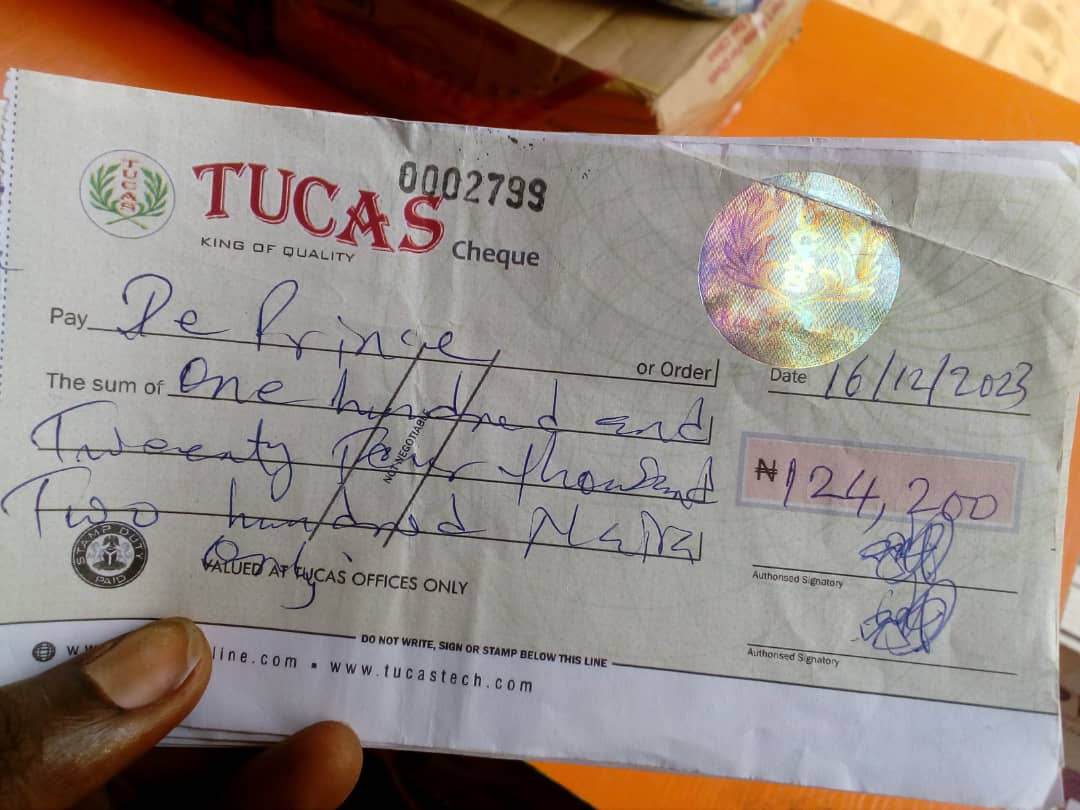 TUCAS
0002799
TUCAS
KING OF QUALITY
Cheque
Pay De Prince or Order
Date 16/12/2023
The sum of One hundred and
Twenty Four thousand
Two hundred Naira
Only
NOT NEGOTIABLE
₦124,200
STAMP DUTY
PAID
VALUED AT TUCAS OFFICES ONLY
Authorised Signatory
Authorised Signatory
DO NOT WRITE, SIGN OR STAMP BELOW THIS LINE
line.com ▪ www.tucastech.com